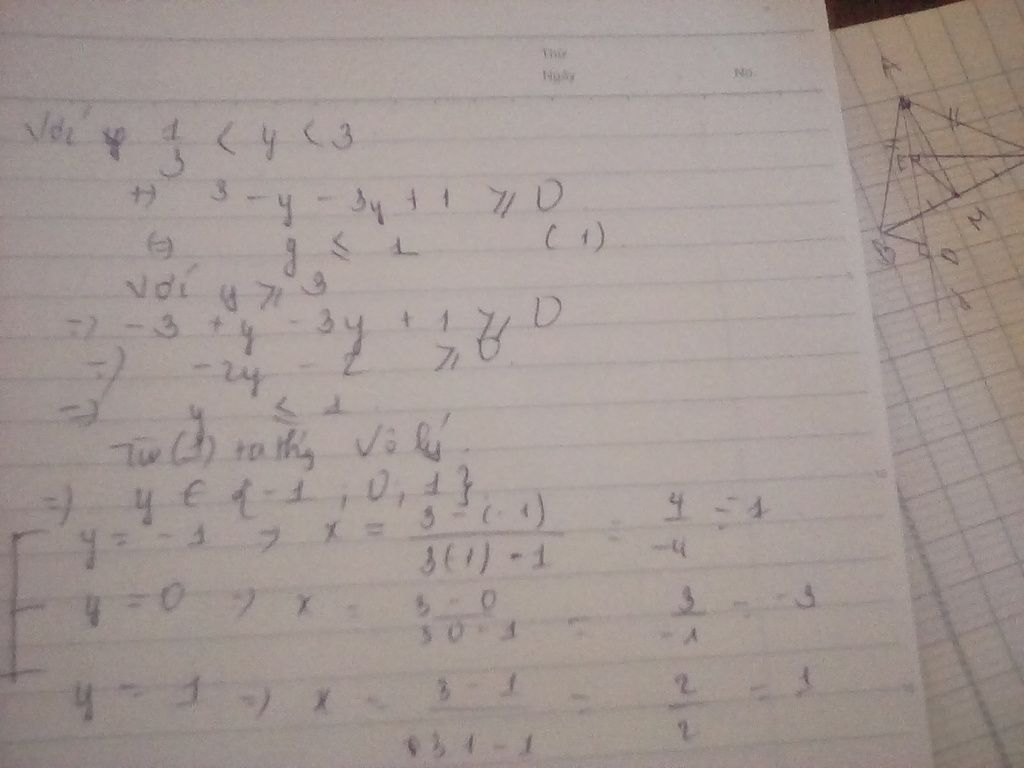 Thứ
Ngày No.
Với 1/3 < y < 3
<=> 3 - y - 3y + 1 ⩾ 0
<=> y ≤ 1 (1)
Với y ⩾ 3
=> -3 + y - 3y + 1 ⩾ 0
=> -2y - 2 ⩾ 0
=> y ≤ 1
Từ (1) ta thấy Vô lý.
=> y ∈ {-1; 0; 1}
y = -1 => x = (3 - (-1))/(3(1) - 1) = 4/-4 = -1
y = 0 => x = (3 - 0)/(3 0 - 1) = 3/-1 = -3
y = 1 => x = (3 - 1)/(3 1 - 1) = 2/2 = 1